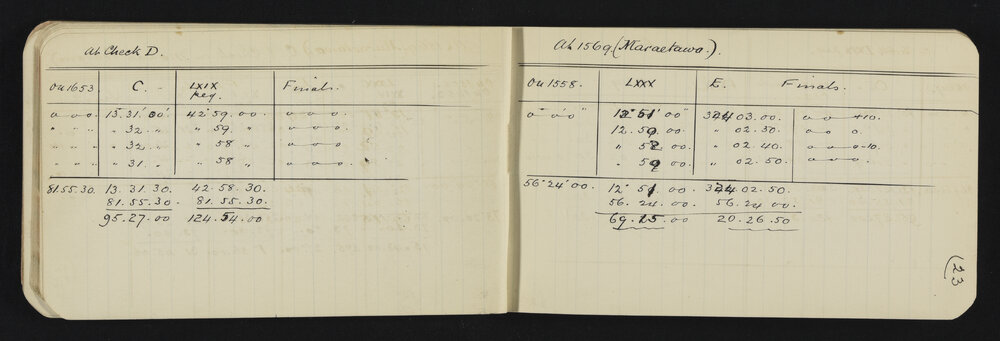 At Check D.
On 1653. C. LXIX peg. Finals.
0 0 0 13° 31' 00" 42° 59. 00. 0 0 0.
" " " " 32. " " 59 " 0 0 0.
" " " " 32. " " 58 " 0 0 0
" " " " 31. " " 58 " 0 0 0.
81.55.30. 13. 31. 30. 42. 58. 30.
81. 55. 30. 81. 55. 30.
95. 27. 00 124. 54. 00
At 1569 (Maraetawa.).
On 1558. LXXX E. Finals.
0° 0' 0" 12° 51' 00" 324 03. 00. 0 0 +10.
12. 50 00. " 02. 30. 0 0 0.
" 52 00. " 02. 40. 0 0 0-10.
" 50 00. " 02. 50. 0 0 0.
56° 24' 00. 12° 51. 00. 324. 02. 50.
56. 24. 00. 56. 24 00.
69. 15 00 20. 26. 50
23